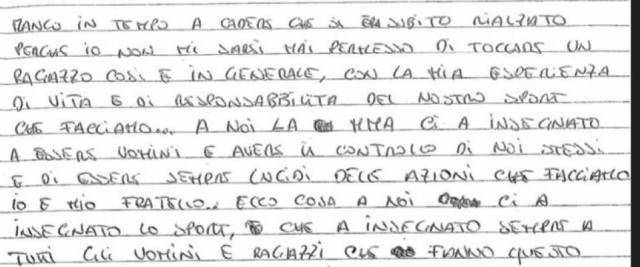 MANCO IN TEMPO A CADERE CHE SI ERA SUBITO RIALZATO
PERCHE IO NON MI SAREI MAI PERMESSO DI TOCCARE UN
RAGAZZO COSI E IN GENERALE, CON LA MIA ESPERIENZA
DI VITA E DI RESPONSABBILITA DEL NOSTRO SPORT
CHE FACCIAMO... A NOI LA MMA CI A INSEGNATO
A ESSERE UOMINI E AVERE IL CONTROLLO DI NOI STESSI
E DI ESSERE SEMPRE LUCIDI DELE AZIONI CHE FACCIAMO
IO E MIO FRATELLO.. ECCO COSA A NOI CI A
INSEGNATO LO SPORT, E CHE A INSEGNATO SEMPRE A
TUTTI GLI UOMINI E RAGAZZI CHE FANNO QUESTO